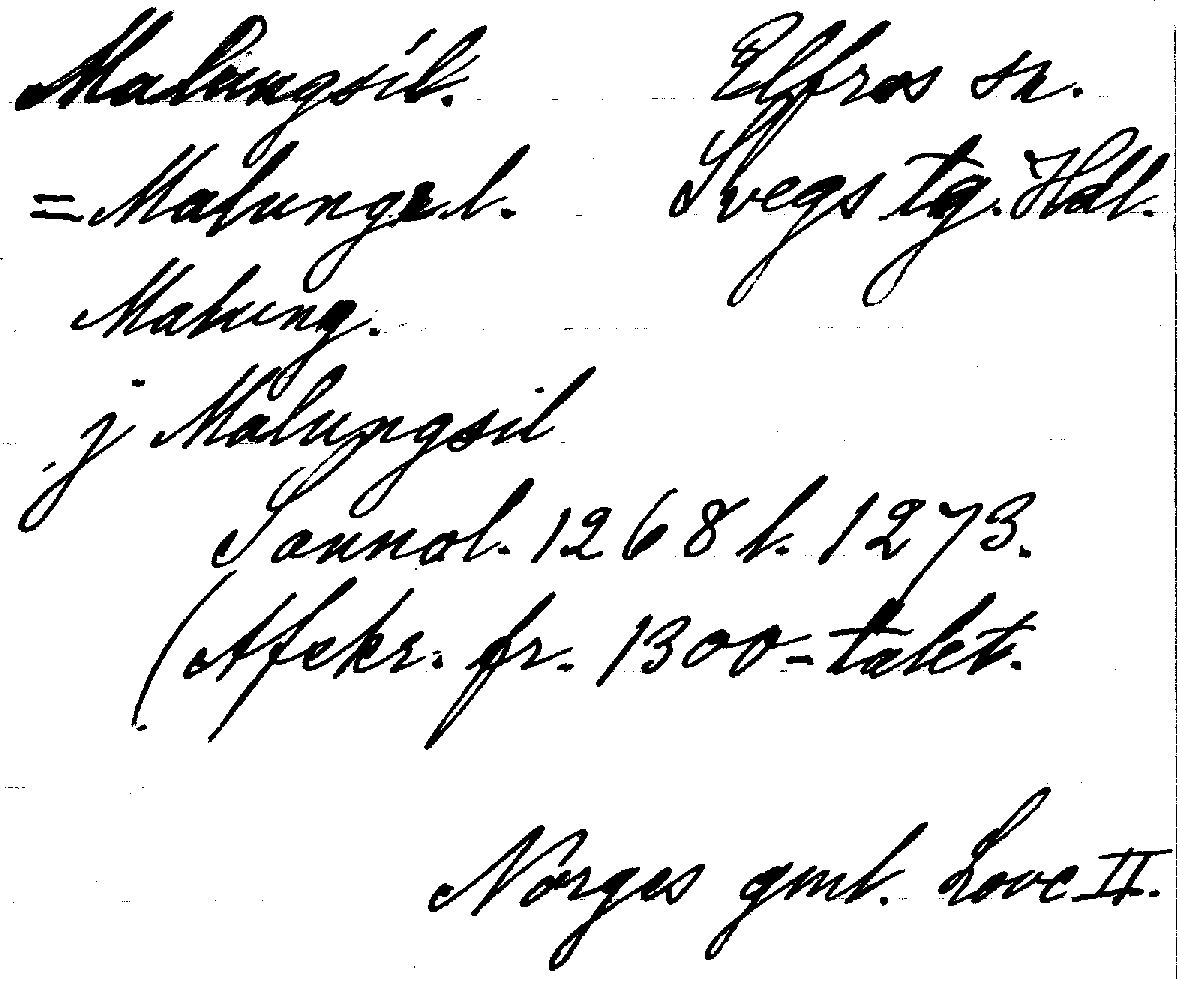 Malungsil. Elfros sn.
= Malunge l. Svegs tg. Hdl.
Malung.
j Malungsil
Sannol. 1268 l. 1273.
(Afskr. fr. 1300-talet.
Norges gml. Love II.